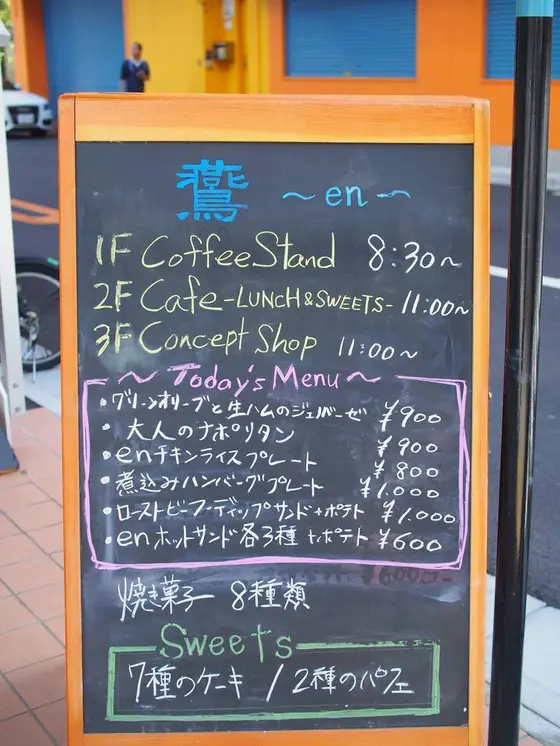 鷰 ~en~
1F Coffee Stand 8:30~
2F Cafe -LUNCH&SWEETS- 11:00~
3F Concept Shop 11:00~
~Today's Menu~
・グリーンオリーブと生ハムのジェノバーゼ ¥900
・大人のナポリタン ¥900
・enチキンライスプレート ¥800
・煮込みハンバーグプレート ¥1.000
・ローストビーフディップサンド+ポテト ¥1.000
・enホットサンド各3種 +ポテト ¥600
焼き菓子 8種類
Sweets
7種のケーキ / 2種のパフェ